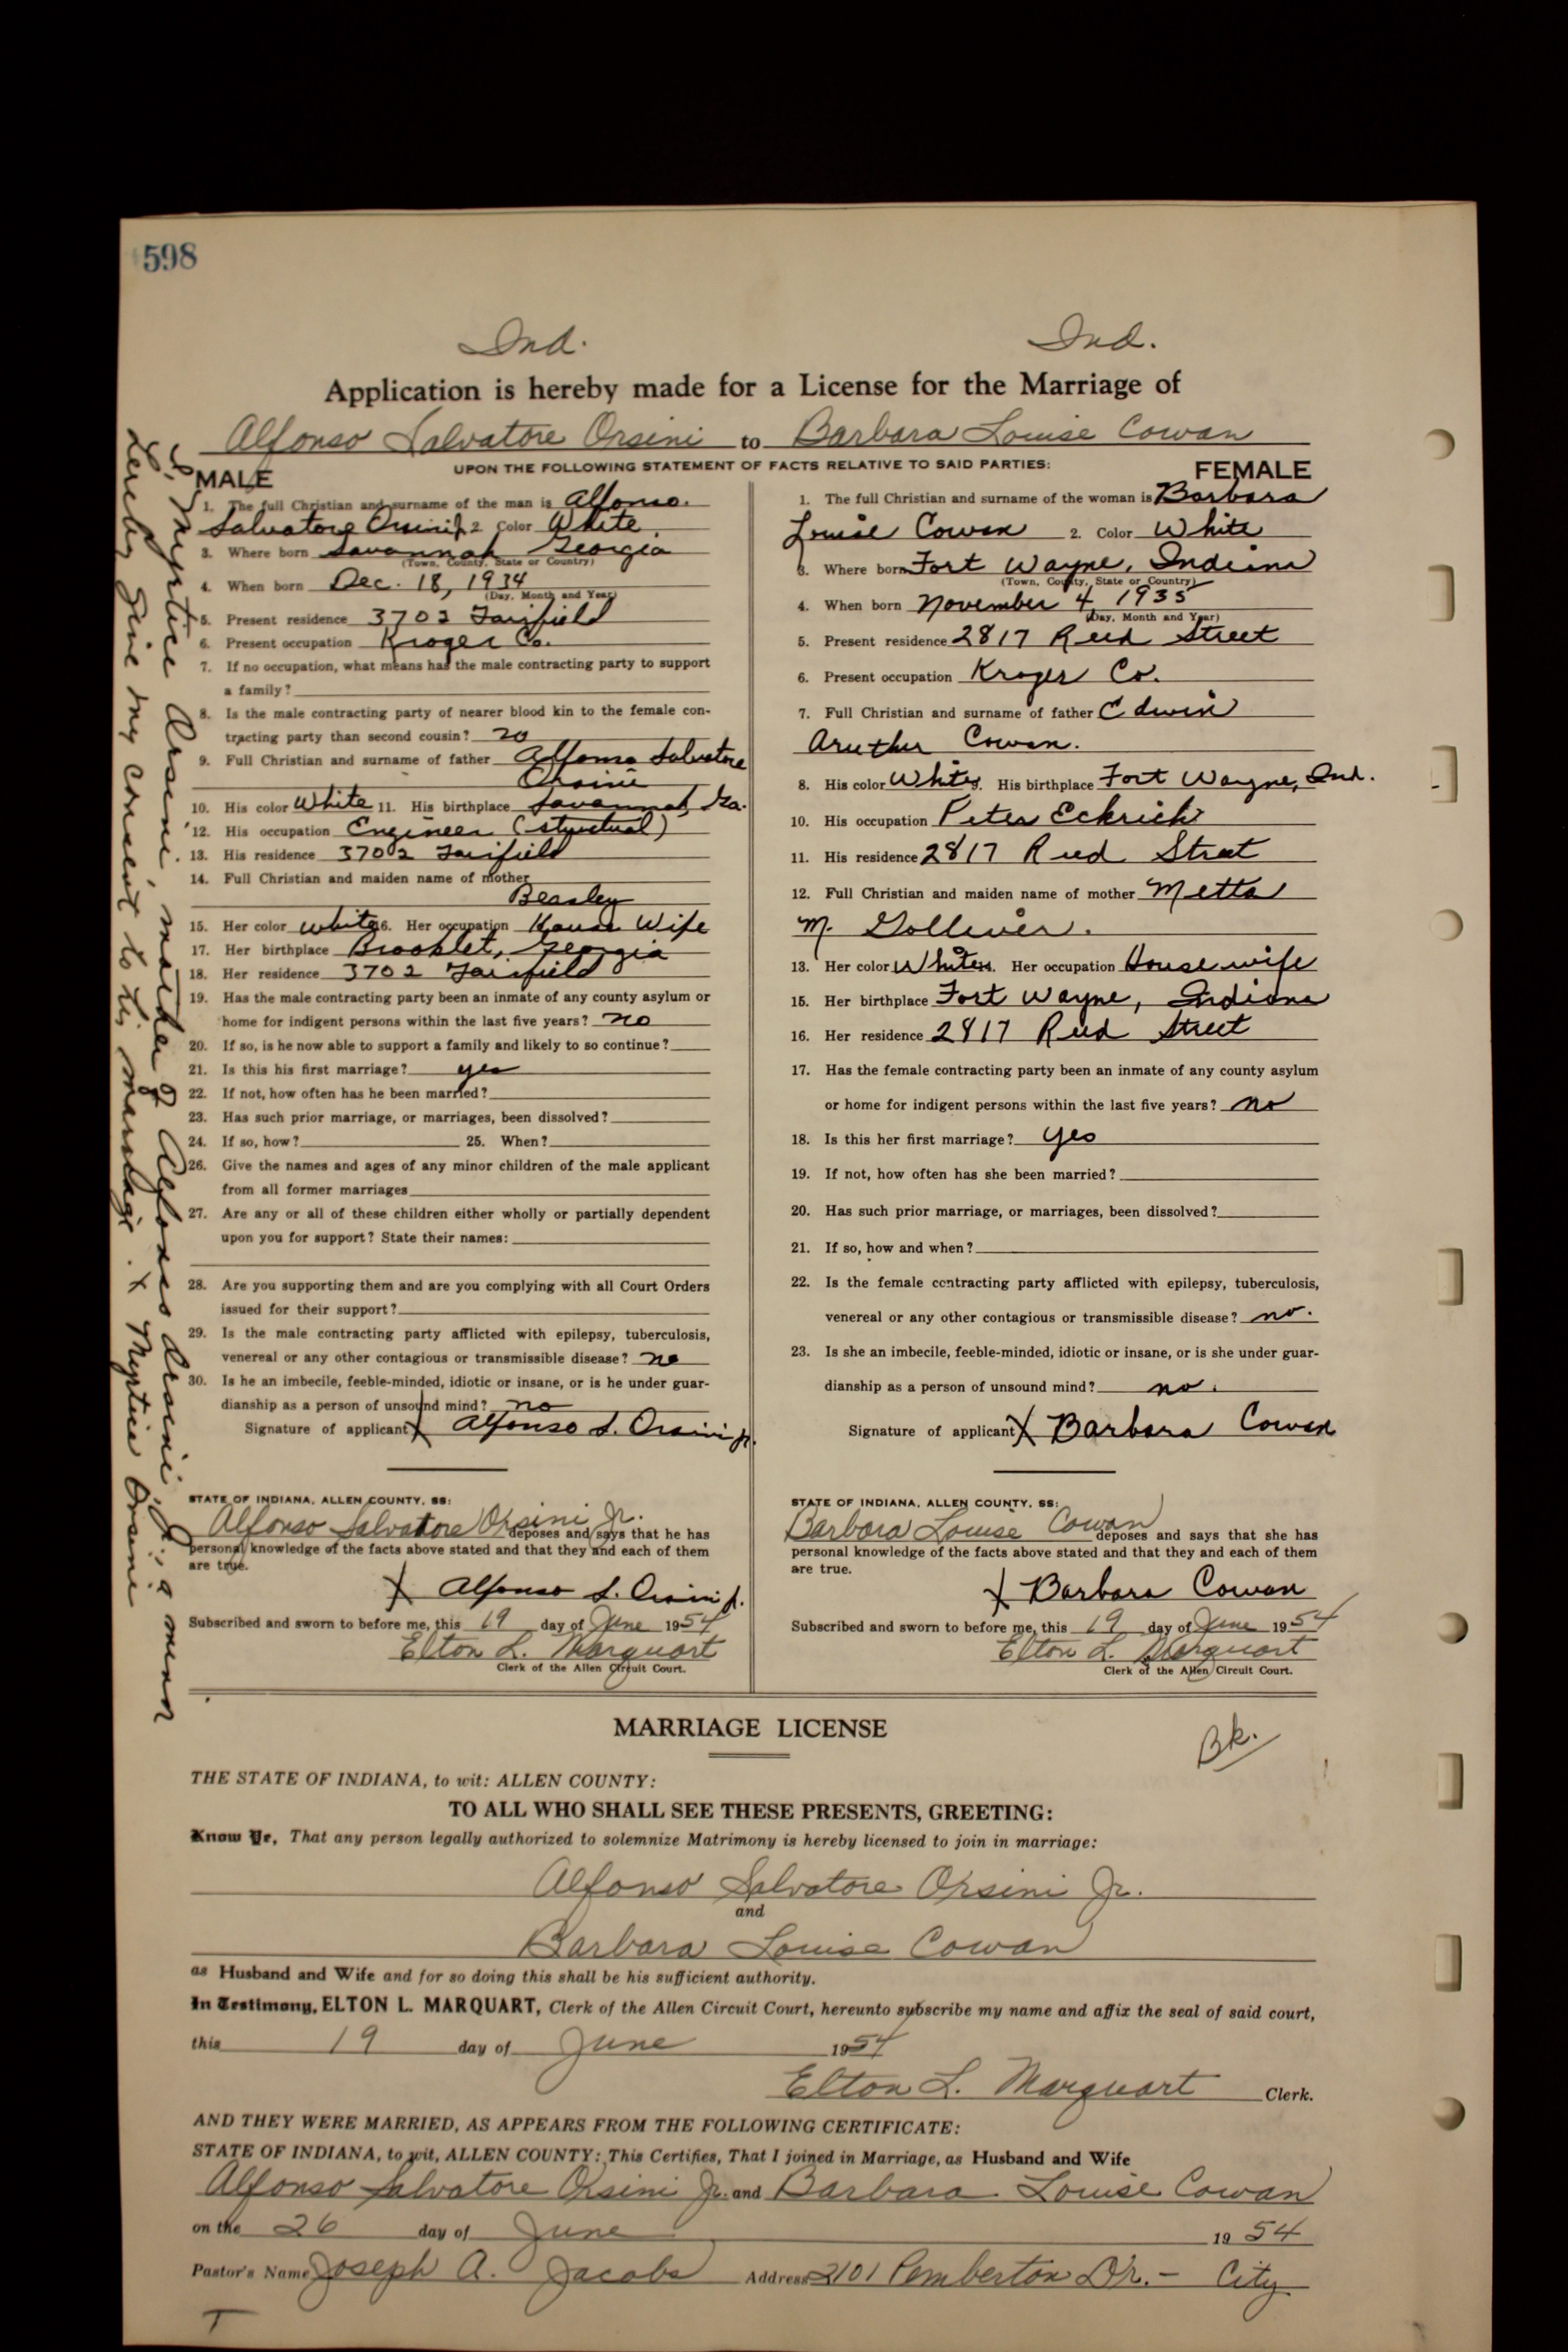 598
Ind. Ind.
Application is hereby made for a License for the Marriage of
Alfonso Salvatore Orsini to Barbara Louise Cowan
UPON THE FOLLOWING STATEMENT OF FACTS RELATIVE TO SAID PARTIES:
MALE
1. The full Christian and surname of the man is Alfonso
Salvatore Orsini Jr. 2. Color White
3. Where born Savannah Georgia
(Town, County, State or Country)
4. When born Dec. 18, 1934
(Day, Month and Year)
5. Present residence 3702 Fairfield
6. Present occupation Kroger Co.
7. If no occupation, what means has the male contracting party to support
a family?
8. Is the male contracting party of nearer blood kin to the female con-
tracting party than second cousin? no
9. Full Christian and surname of father Alfonso Salvatore
Orsini
10. His color White 11. His birthplace Savannah, Ga.
12. His occupation Engineer (structual)
13. His residence 3702 Fairfield
14. Full Christian and maiden name of mother
Beasley
15. Her color white 16. Her occupation House Wife
17. Her birthplace Brooklet, Georgia
18. Her residence 3702 Fairfield
19. Has the male contracting party been an inmate of any county asylum or
home for indigent persons within the last five years? no
20. If so, is he now able to support a family and likely to so continue?
21. Is this his first marriage? yes
22. If not, how often has he been married?
23. Has such prior marriage, or marriages, been dissolved?
24. If so, how? 25. When?
26. Give the names and ages of any minor children of the male applicant
from all former marriages
27. Are any or all of these children either wholly or partially dependent
upon you for support? State their names:
28. Are you supporting them and are you complying with all Court Orders
issued for their support?
29. Is the male contracting party afflicted with epilepsy, tuberculosis,
venereal or any other contagious or transmissible disease? no
30. Is he an imbecile, feeble-minded, idiotic or insane, or is he under guar-
dianship as a person of unsound mind? no
Signature of applicant X Alfonso S. Orsini Jr.
STATE OF INDIANA, ALLEN COUNTY, SS:
Alfonso Salvatore Orsini Jr.
deposes and says that he has
personal knowledge of the facts above stated and that they and each of them
are true.
X Alfonso S. Orsini Jr.
Subscribed and sworn to before me, this 19 day of June 1954
Elton L. Marquart
Clerk of the Allen Circuit Court.
I, Myrtice Orsini, mother of Alfonso Orsini Jr., a minor
hereby give my consent to this marriage. X Myrtice Orsini
FEMALE
1. The full Christian and surname of the woman is Barbara
Louise Cowan 2. Color White
3. Where born Fort Wayne, Indiana
(Town, County, State or Country)
4. When born November 4 1935
(Day, Month and Year)
5. Present residence 2817 Reed Street
6. Present occupation Kroger Co.
7. Full Christian and surname of father Edwin
Aruther Cowan.
8. His color White 9. His birthplace Fort Wayne, Ind.
10. His occupation Peter Eckrich
11. His residence 2817 Reed Street
12. Full Christian and maiden name of mother Metta
M. Golliver.
13. Her color White 14. Her occupation Housewife
15. Her birthplace Fort Wayne, Indiana
16. Her residence 2817 Reed Street
17. Has the female contracting party been an inmate of any county asylum
or home for indigent persons within the last five years? no
18. Is this her first marriage? yes
19. If not, how often has she been married?
20. Has such prior marriage, or marriages, been dissolved?
21. If so, how and when?
22. Is the female contracting party afflicted with epilepsy, tuberculosis,
venereal or any other contagious or transmissible disease? no.
23. Is she an imbecile, feeble-minded, idiotic or insane, or is she under guar-
dianship as a person of unsound mind? no.
Signature of applicant X Barbara Cowan
STATE OF INDIANA, ALLEN COUNTY, SS:
Barbara Louise Cowan
deposes and says that she has
personal knowledge of the facts above stated and that they and each of them
are true.
X Barbara Cowan
Subscribed and sworn to before me, this 19 day of June 1954
Elton L. Marquart
Clerk of the Allen Circuit Court.
MARRIAGE LICENSE
Bk.
THE STATE OF INDIANA, to wit: ALLEN COUNTY:
TO ALL WHO SHALL SEE THESE PRESENTS, GREETING:
Know Ye, That any person legally authorized to solemnize Matrimony is hereby licensed to join in marriage:
Alfonso Salvatore Orsini Jr.
and
Barbara Louise Cowan
as Husband and Wife and for so doing this shall be his sufficient authority.
In Testimony, ELTON L. MARQUART, Clerk of the Allen Circuit Court, hereunto subscribe my name and affix the seal of said court,
this 19 day of June 1954
Elton L. Marquart Clerk.
AND THEY WERE MARRIED, AS APPEARS FROM THE FOLLOWING CERTIFICATE:
STATE OF INDIANA, to wit, ALLEN COUNTY: This Certifies, That I joined in Marriage, as Husband and Wife
Alfonso Salvatore Orsini Jr. and Barbara Louise Cowan
on the 26 day of June 1954
Pastor's Name Joseph A. Jacobs Address 2101 Pemberton Dr. - City
T